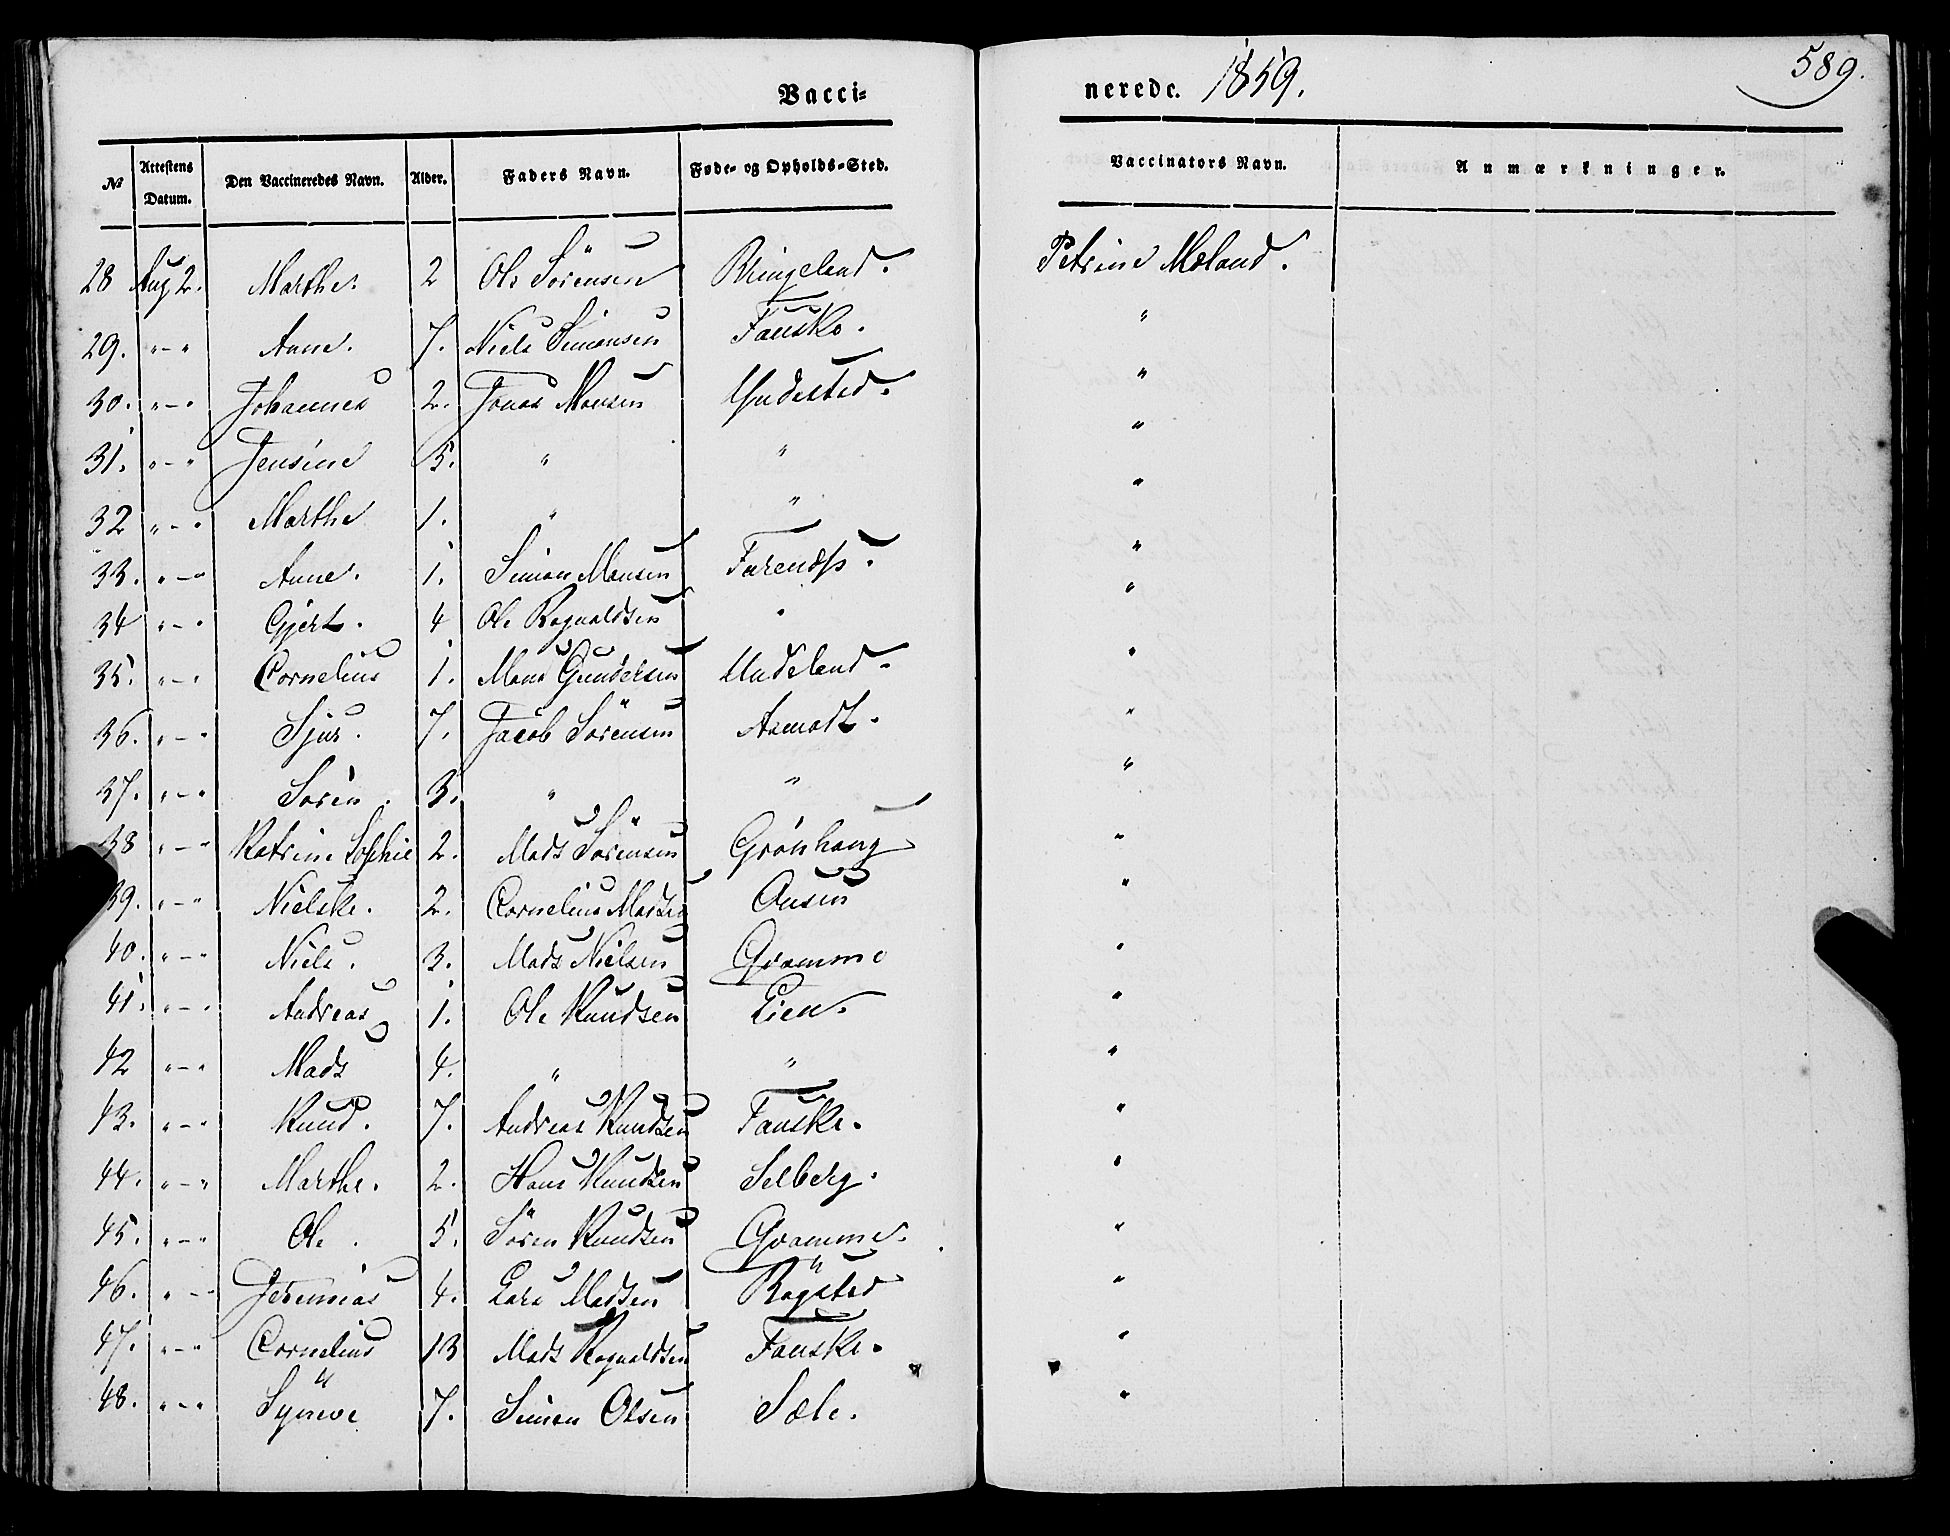 Vacci-
nerede. 1859.
589.
№ Attestens Datum. Den Vaccineredes Navn. Alder. Faders Navn. Føde- og Opholds-Sted. Vaccinators Navn. Anmærkninger.
28 Aug 2. Marthe. 2 Ole Sörensen Ringeland. Petrine Moland.
29. " - " Anne. 7. Niels Simonsen Fauske. "
30. " - " Johannes 2. Jonas Monsen Yndested. "
31. " - " Jensine 5. " " "
32 " - " Marthe 1. " " "
33. " - " Anne. 1. Simon Monsen "
34 " - " Gjert. 4 Ole Rognaldsen " "
35. " - " Cornelius 1. Mons Gundersen Undeland. "
36. " - " Sjur. 7. Jacob Sörensen Asmodt. "
37. " - " Sören. 3. " " "
38 " - " Katrine Sophie 2. Mads Sörensen Grönhaug "
39. " - " Nielske. 2. Cornelius Madsen "
40. " - " Niels. 3. Mads Nielsen Qvamme "
41. " - " Andreas 1. Ole Knudsen Eien. "
42 " - " Mads 4. " " "
43. " - " Knud. 7. Andreas Knudsen Fauske. "
44. " - " Marthe. 2. Hans Knudsen Selberg. "
45. " - " Ole. 5. Sören Knudsen Qvamme. "
46. " - " Jeremias 4. Lars Madsen Röysted "
47. " - " Cornelius 13 Mads Rognaldsen Fauske. "
48. " - " Syneve 7. Simon Olsen Sæle. "